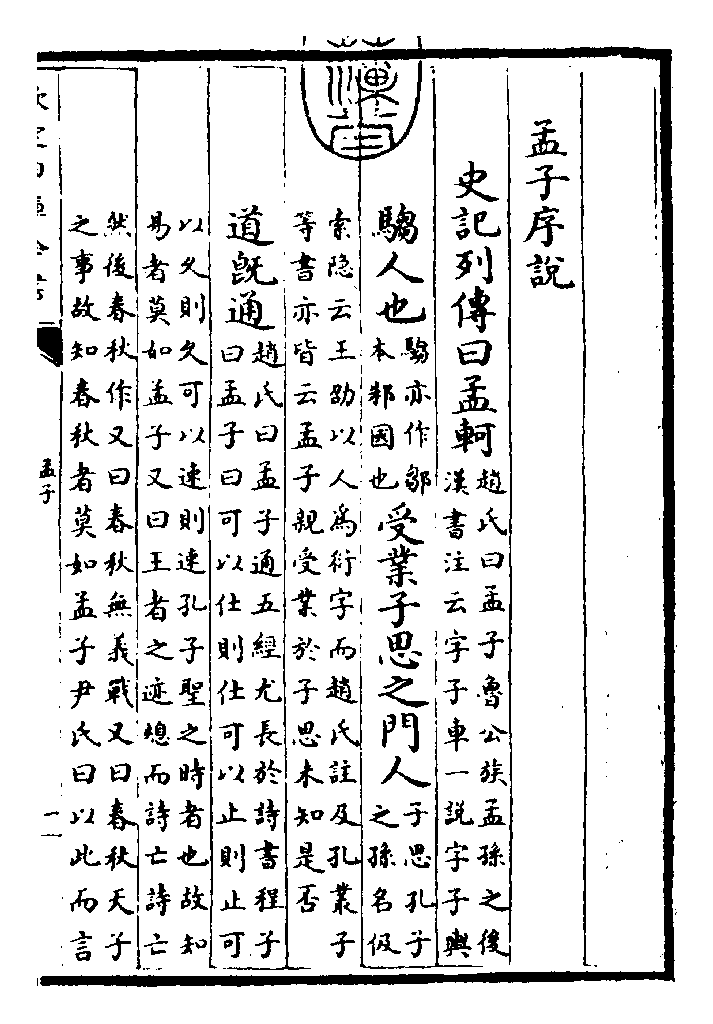 孟子序說
史記列傳曰孟軻趙氏曰孟子魯公族孟孫之後
漢書注云字子車一說字子輿
騶人也騶亦作鄒
本邾國也受業子思之門人子思孔子
之孫名伋
索隐云王劭以人爲衍字而趙氏註及孔叢子
等書亦皆云孟子親受業於子思未知是否
道旣通趙氏曰孟子通五經尤長於詩書程子
曰孟子曰可以仕則仕可以止則止可
以久則久可以速則速孔子聖之時者也故知
易者莫如孟子又曰王者之迹熄而詩亡詩亡
然後春秋作又曰春秋無義戰又曰春秋天子
之事故知春秋者莫如孟子尹氏曰以此而言
孟子
一